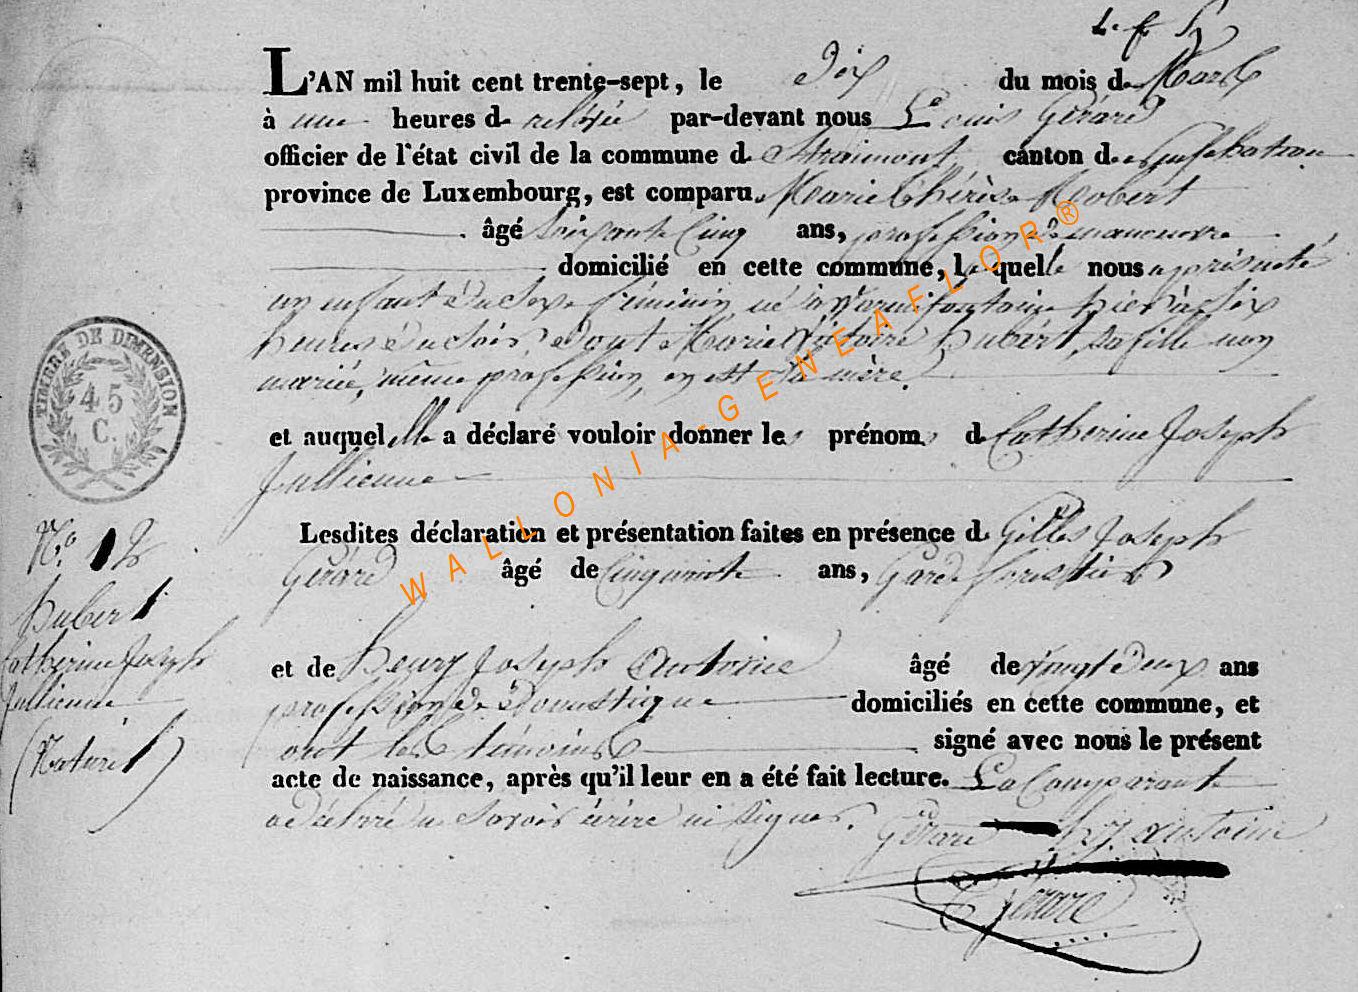 L'AN mil huit cent trente-sept, le dix du mois de Mars
à une heures de relevée par-devant nous Louis Gérard
officier de l'état civil de la commune de Straimont canton de Neufchateau
province de Luxembourg, est comparu Marie Thérèse Robert
âgé soixante Cinq ans, profession de manoeuvre
domicilié en cette commune, laquelle nous a présenté
un enfant du sexe féminin né à hier à six
heures du soir, dont Marie Victoire hubert, sa fille non
mariée, même profession, en est la mère.
et auquel elle a déclaré vouloir donner les prénoms de Catherine Joseph
Jullienne
Lesdites déclaration et présentation faites en présence de Gilles Joseph
Gérard âgé de Cinquante ans, Garde forestier
et de henry Joseph Antoine âgé de vingt deux ans
profession de domestique domiciliés en cette commune, et
ont les témoins signé avec nous le présent
acte de naissance, après qu'il leur en a été fait lecture. La Comparante
a déclaré ne savoir écrire ni signer.
Gérard h. J. Antoine
Gérard
TIMBRE DE DIMENSION
45
C.
N.º 12
hubert
Catherine Joseph
Jullienne
(Naturel)
WALLONIA-GENEAFLOR®